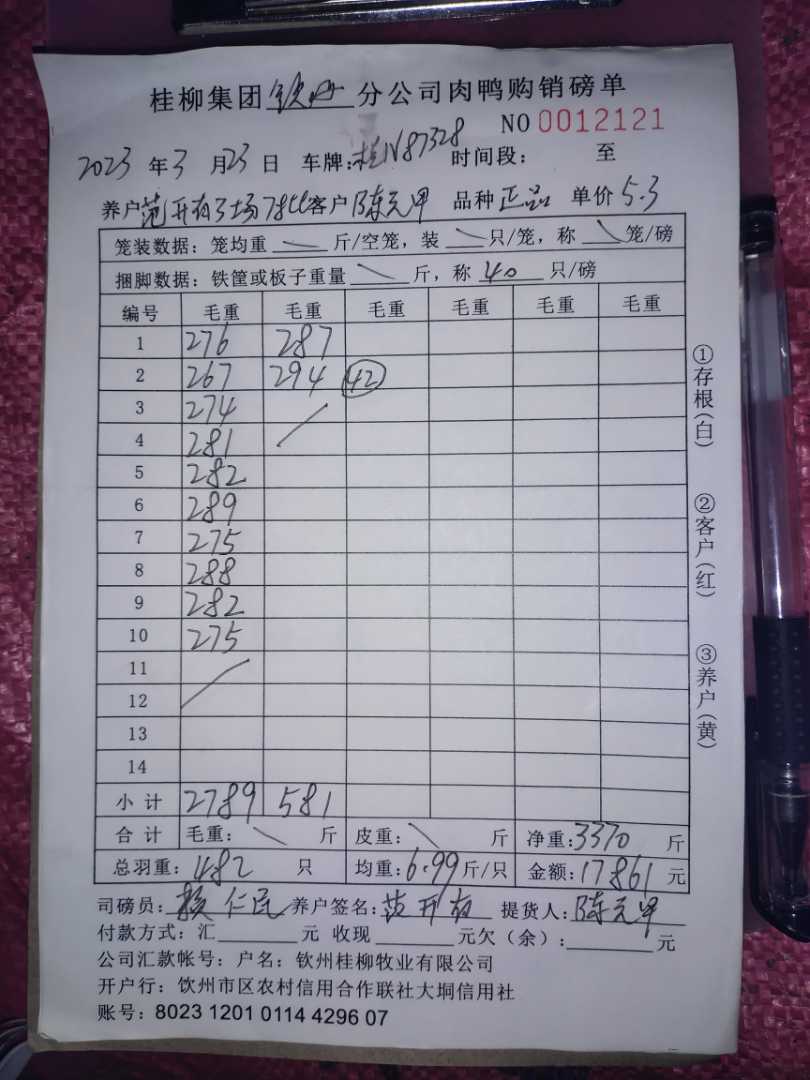 桂柳集团钦州分公司肉鸭购销磅单
NO 0012121
2023 年 3 月 23 日 车牌：桂N87328 时间段： 至
养户 范开有3场 客户 陈元甲 品种 正品 单价 5.3
笼装数据：笼均重 斤/空笼，装 只/笼，称 笼/磅
捆脚数据：铁筐或板子重量 斤，称 40 只/磅
编号 毛重 毛重 毛重 毛重 毛重 毛重
1 276 287
2 267 294 42
3 274
4 281
5 282
6 289
7 275
8 288
9 282
10 275
11
12
13
14
小计 2789 581
合计 毛重： 斤 皮重： 斤 净重：3370 斤
总羽重：482 只 均重：6.99 斤/只 金额：17861 元
司磅员：赖仁民 养户签名：范开有 提货人：陈元甲
付款方式：汇 元 收现 元欠（余）： 元
公司汇款帐号：户名：钦州桂柳牧业有限公司
开户行：钦州市区农村信用合作联社大垌信用社
账号：8023 1201 0114 4296 07
①存根（白）
②客户（红）
③养户（黄）